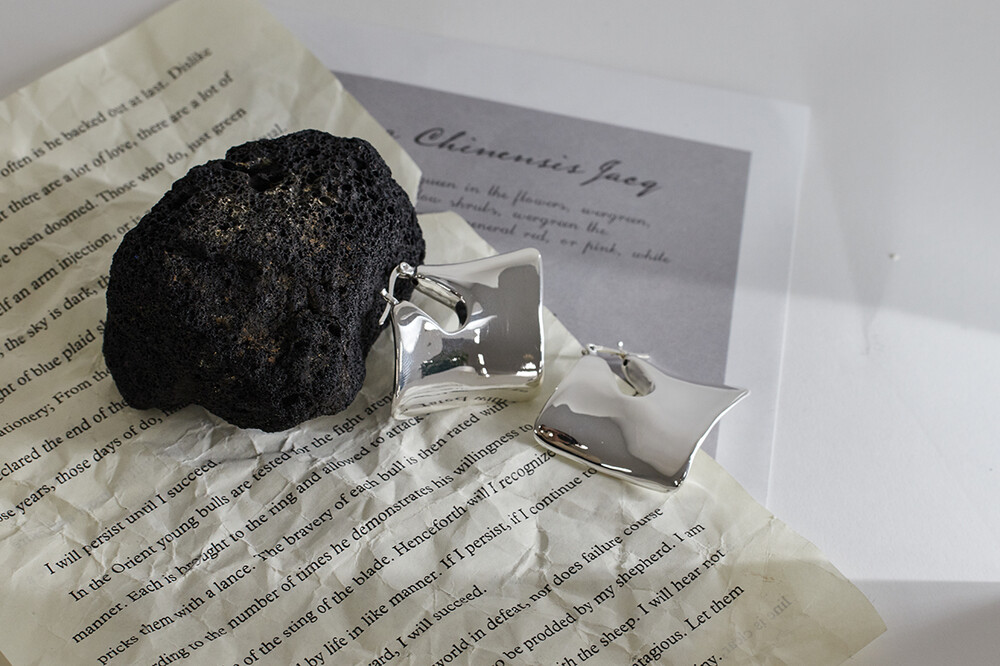 often is he backed out at last. Dislike
there are a lot of love, there are a lot of
been doomed. Those who do, just green
an arm injection, or
the sky is dark,
of blue plaid
From the
the end of the
years, those days of do, for the fight
I will persist until I succeed.
In the Orient young bulls are tested for the fight
manner. Each is brought to the ring and allowed to attack
pricks them with a lance. The bravery of each bull is then rated with
to the number of times he demonstrates his willingness to
of the sting of the blade. Henceforth will I recognize
by life in like manner. If I persist, if I continue to
I will succeed.
world in defeat, nor does failure course
be prodded by my shepherd. I am
the sheep. I will hear not
Let them
Chinensis Jacq
queen in the flowers, wergreen,
shrubs, wergreen the
red, or pink, white